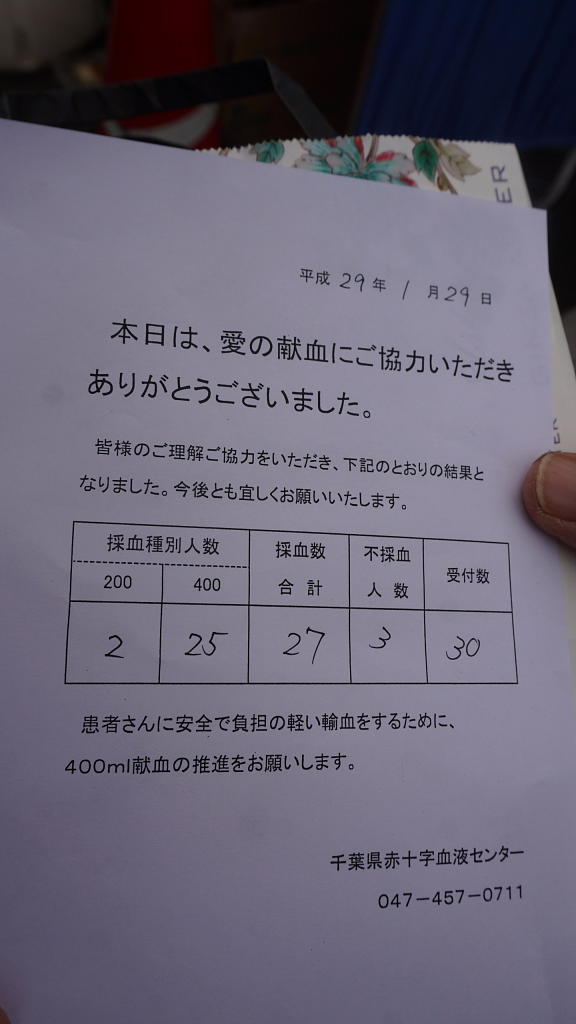 ER
平成 29 年 1 月 29 日
本日は、愛の献血にご協力いただき
ありがとうございました。
皆様のご理解ご協力をいただき、下記のとおりの結果と
なりました。今後とも宜しくお願いいたします。
採血種別人数 採血数 不採血 受付数
200 400 合計 人数
2 25 27 3 30
患者さんに安全で負担の軽い輸血をするために、
400ml献血の推進をお願いします。
千葉県赤十字血液センター
047－457－0711